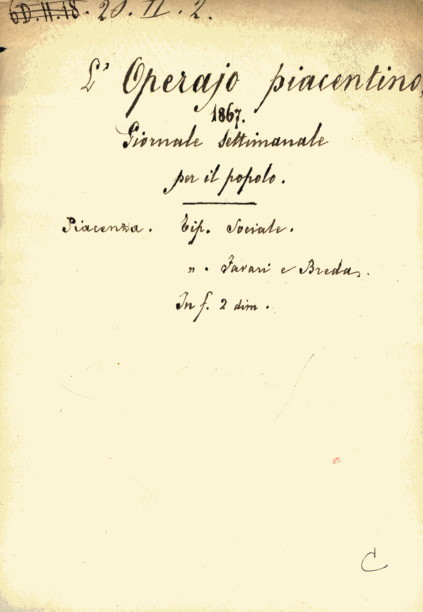 6D.II.18. 20.II.2.
L' Operajo piacentino,
1867.
Giornale settimanale
per il popolo.
Piacenza. Tip. Sociale.
". Favari e Breda.
In f. 2 dim.
C